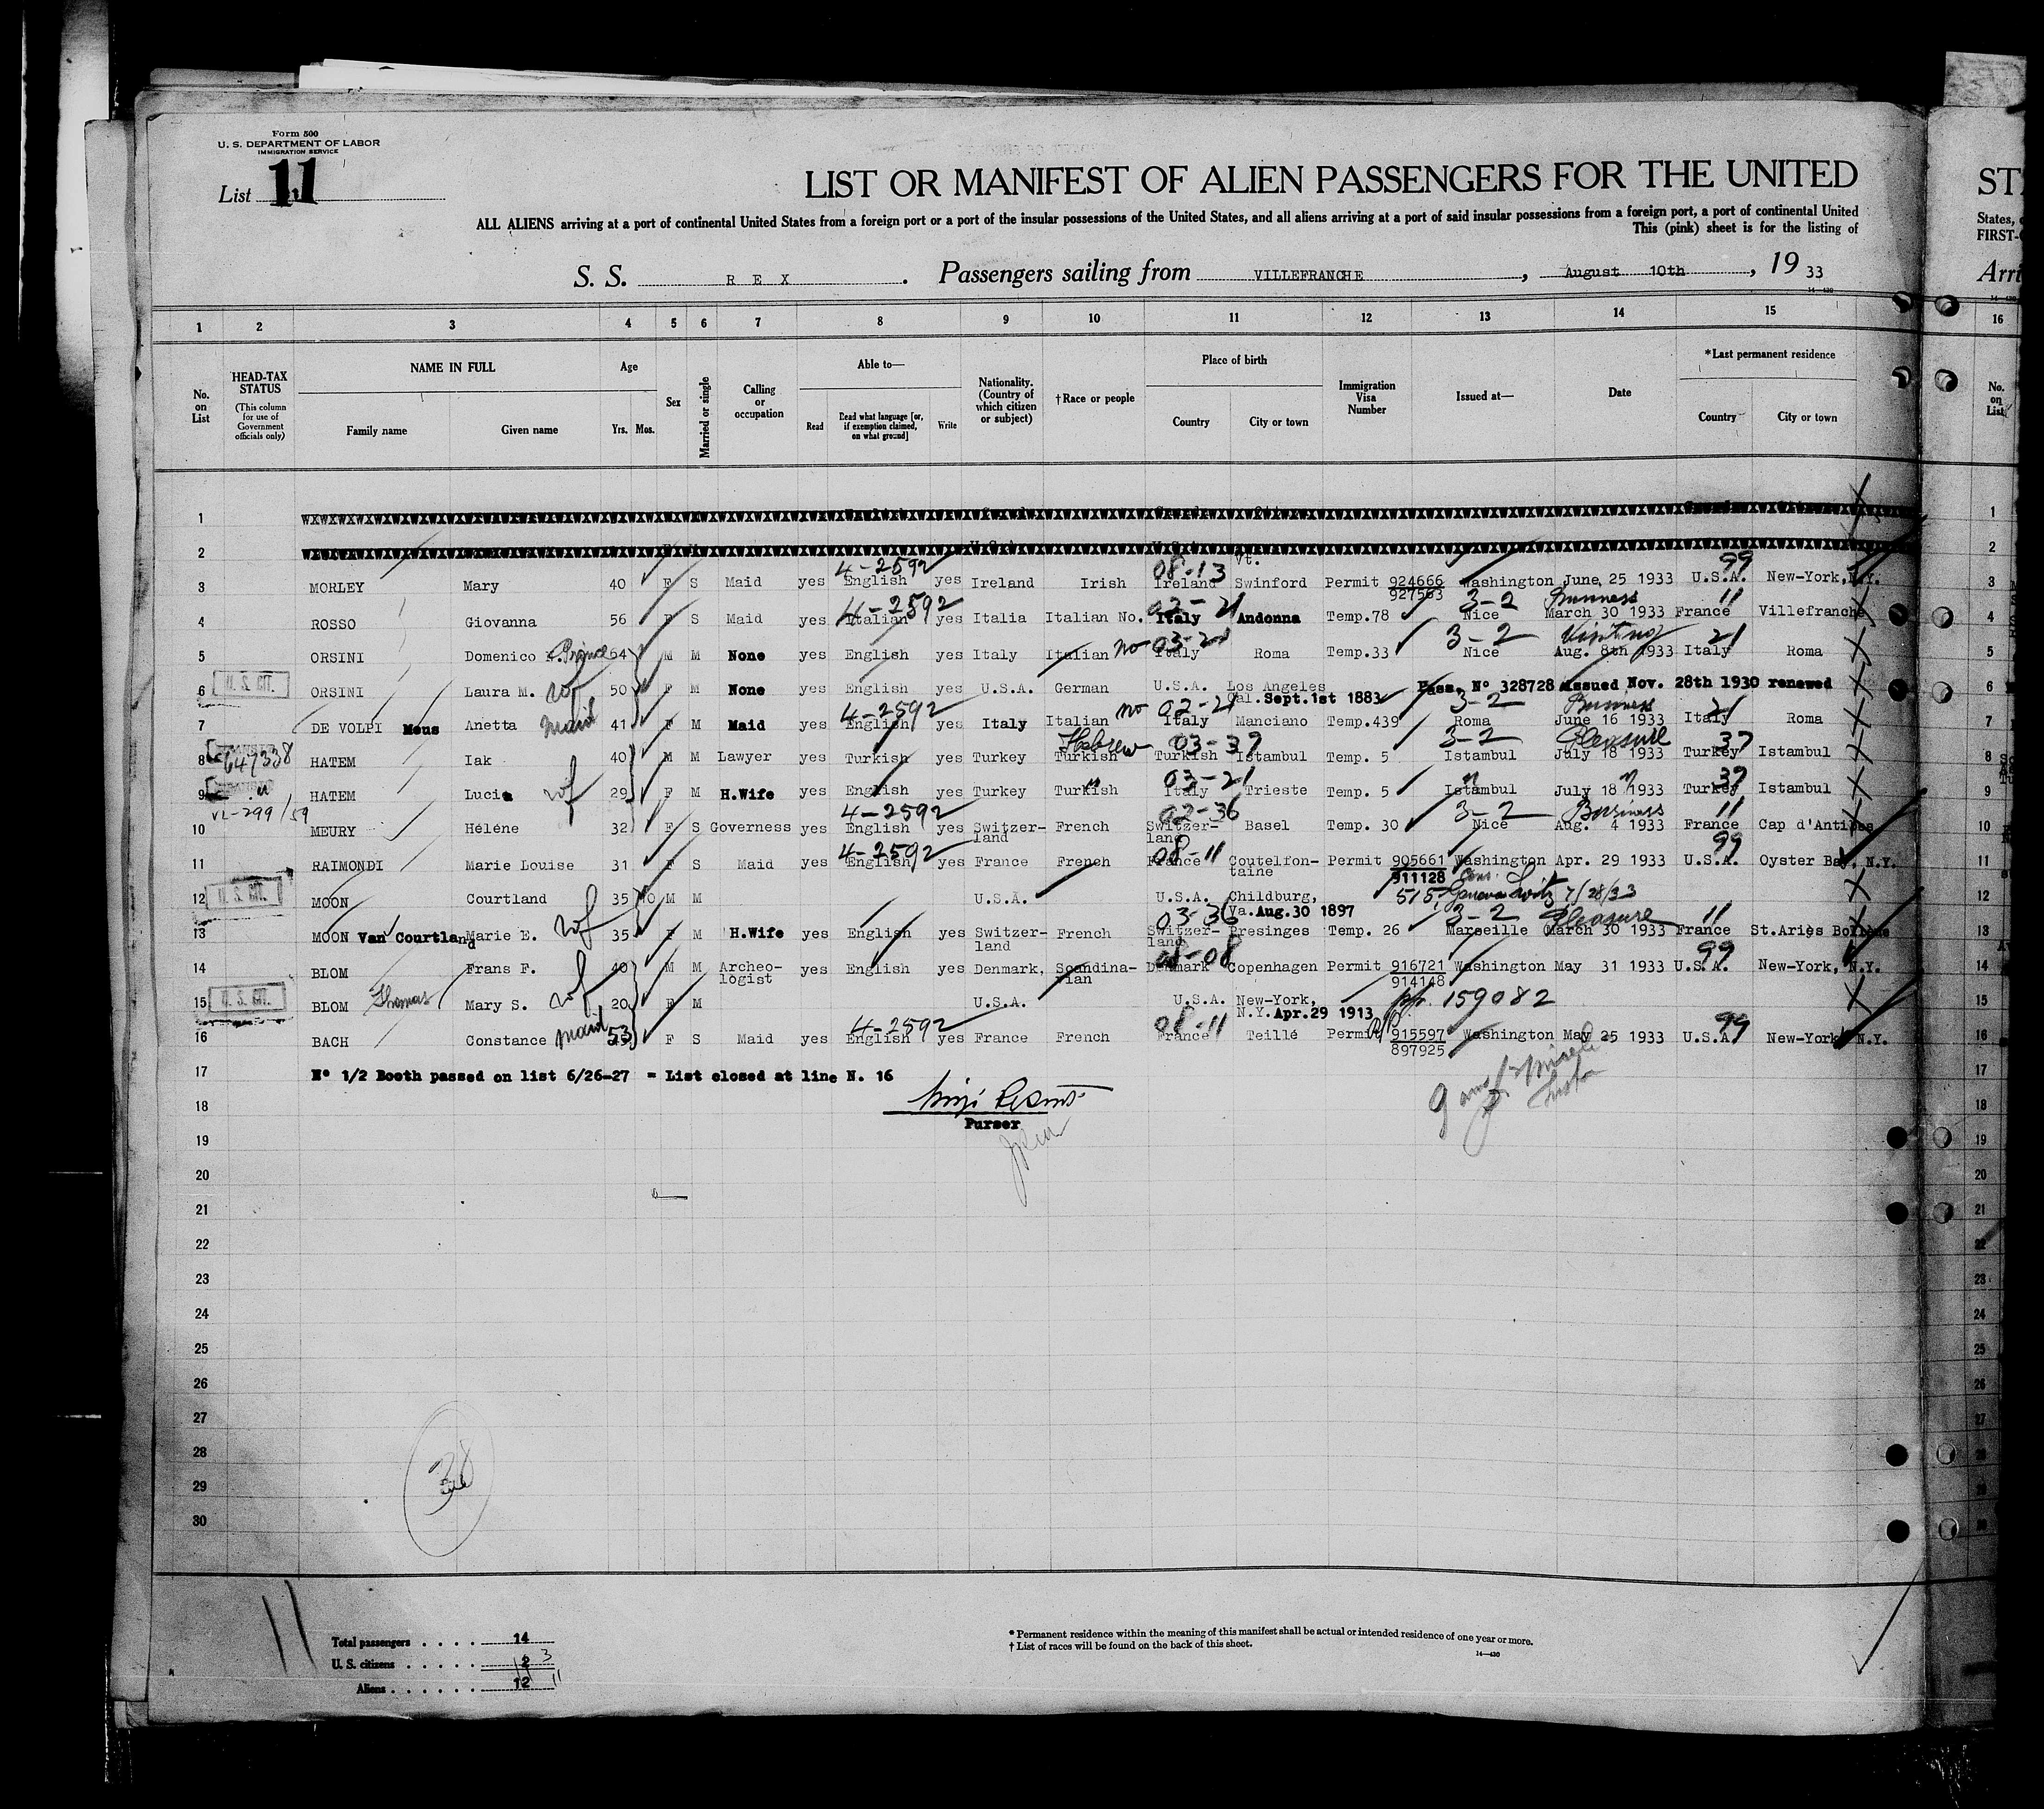 Form 500
U. S. DEPARTMENT OF LABOR
IMMIGRATION SERVICE
List 11
LIST OR MANIFEST OF ALIEN PASSENGERS FOR THE UNITED
ALL ALIENS arriving at a port of continental United States from a foreign port or a port of the insular possessions of the United States, and all aliens arriving at a port of said insular possessions from a foreign port, a port of continental United
This (pink) sheet is for the listing of
S. S. R E X . Passengers sailing from VILLEFRANCHE , August 10th , 19 33
1 2 3 4 5 6 7 8 9 10 11 12 13 14 15
No. on List
HEAD-TAX STATUS (This column for use of Government officials only)
NAME IN FULL
Family name Given name
Age
Yrs. Mos.
Sex
Married or single
Calling or occupation
Able to—
Read
Read what language [or, if exemption claimed, on what ground]
Write
Nationality. (Country of which citizen or subject)
†Race or people
Place of birth
Country City or town
Immigration Visa Number
Issued at—
Date
*Last permanent residence
Country City or town
1
2
4-2592 08-13 Vt. 99
3 MORLEY Mary 40 F S Maid yes English yes Ireland Irish Ireland Swinford Permit 924666 Washington June, 25 1933 U.S.A. New-York, N.Y.
927563
4-2592 02-21 3-2 Business 11
4 ROSSO Giovanna 56 F S Maid yes Italian yes Italia Italian No. Italy Andonna Temp.78 Nice March 30 1933 France Villefranche
Prince no 03-21 3-2 Visiting 21
5 ORSINI Domenico 64 M M None yes English yes Italy Italian Italy Roma Temp.33 Nice Aug. 8th 1933 Italy Roma
U. S. CIT.
6 ORSINI Laura M. wf 50 F M None yes English yes U.S.A. German U.S.A. Los Angeles Pass. N° 328728 issued Nov. 28th 1930 renewed
Cal. Sept.1st 1883
4-2592 no 02-21 3-2 Business 21
7 DE VOLPI Meus Anetta maid 41 F M Maid yes English yes Italy Italian Italy Manciano Temp.439 Roma June 16 1933 Italy Roma
647338 Hebrew 03-37 3-2 Pleasure 37
8 HATEM Iak 40 M M Lawyer yes Turkish yes Turkey Turkish Turkish Istambul Temp. 5 Istambul July 18 1933 Turkey Istambul
" 03-21 " " 37
9 HATEM Lucie wf 29 F M H.Wife yes English yes Turkey Turkish Italy Trieste Temp. 5 Istambul July 18 1933 Turkey Istambul
VL-299/59 4-2592 02-36 3-2 Business 11
10 MEURY Héléne 32 F S Governess yes English yes Switzer-land French Switzer-land Basel Temp. 30 Nice Aug. 4 1933 France Cap d'Antibes
4-2592 08-11 99
11 RAIMONDI Marie Louise 31 F S Maid yes English yes France French France Coutelfon-taine Permit 905661 Washington Apr. 29 1933 U.S.A. Oyster Bay, N.Y.
911128
U. S. CIT.
12 MOON Courtland 35 10 M M U.S.A. U.S.A. Childburg, 515, Geneva Switz 7/28/33
Va. Aug.30 1897
03-36 3-2 Pleasure 11
13 MOON Van Courtland Marie E. wf 35 F M H.Wife yes English yes Switzer-land French Switzer-land Presinges Temp. 26 Marseille March 30 1933 France St.Ariès Bollène
08-08 99
14 BLOM Frans F. 40 M M Archeo-logist yes English yes Denmark, Scandina-vian Denmark Copenhagen Permit 916721 Washington May 31 1933 U.S.A. New-York, N.Y.
914148
U. S. CIT.
15 BLOM Thomas Mary S. wf 20 F M U.S.A. U.S.A. New-York, 159082
N.Y. Apr.29 1913
4-2592 08-11 99
16 BACH Constance maid 53 F S Maid yes English yes France French France Teillé Permit 915597 Washington May 25 1933 U.S.A. New-York, N.Y.
897925
17 N° 1/2 Booth passed on list 6/26-27 = List closed at line N. 16
18
Purser
19
20
21
22
23
24
25
26
27
28
29
30
38
Total passengers 14
U. S. citizens 2 3
Aliens 12 11
* Permanent residence within the meaning of this manifest shall be actual or intended residence of one year or more.
† List of races will be found on the back of this sheet.
14—430
ST
States,
FIRST-
Arri
16
No. on List
1
2
3
4
5
6
7
8
9
10
11
12
13
14
15
16
17
18
19
20
21
22
23
24
25
26
27
28